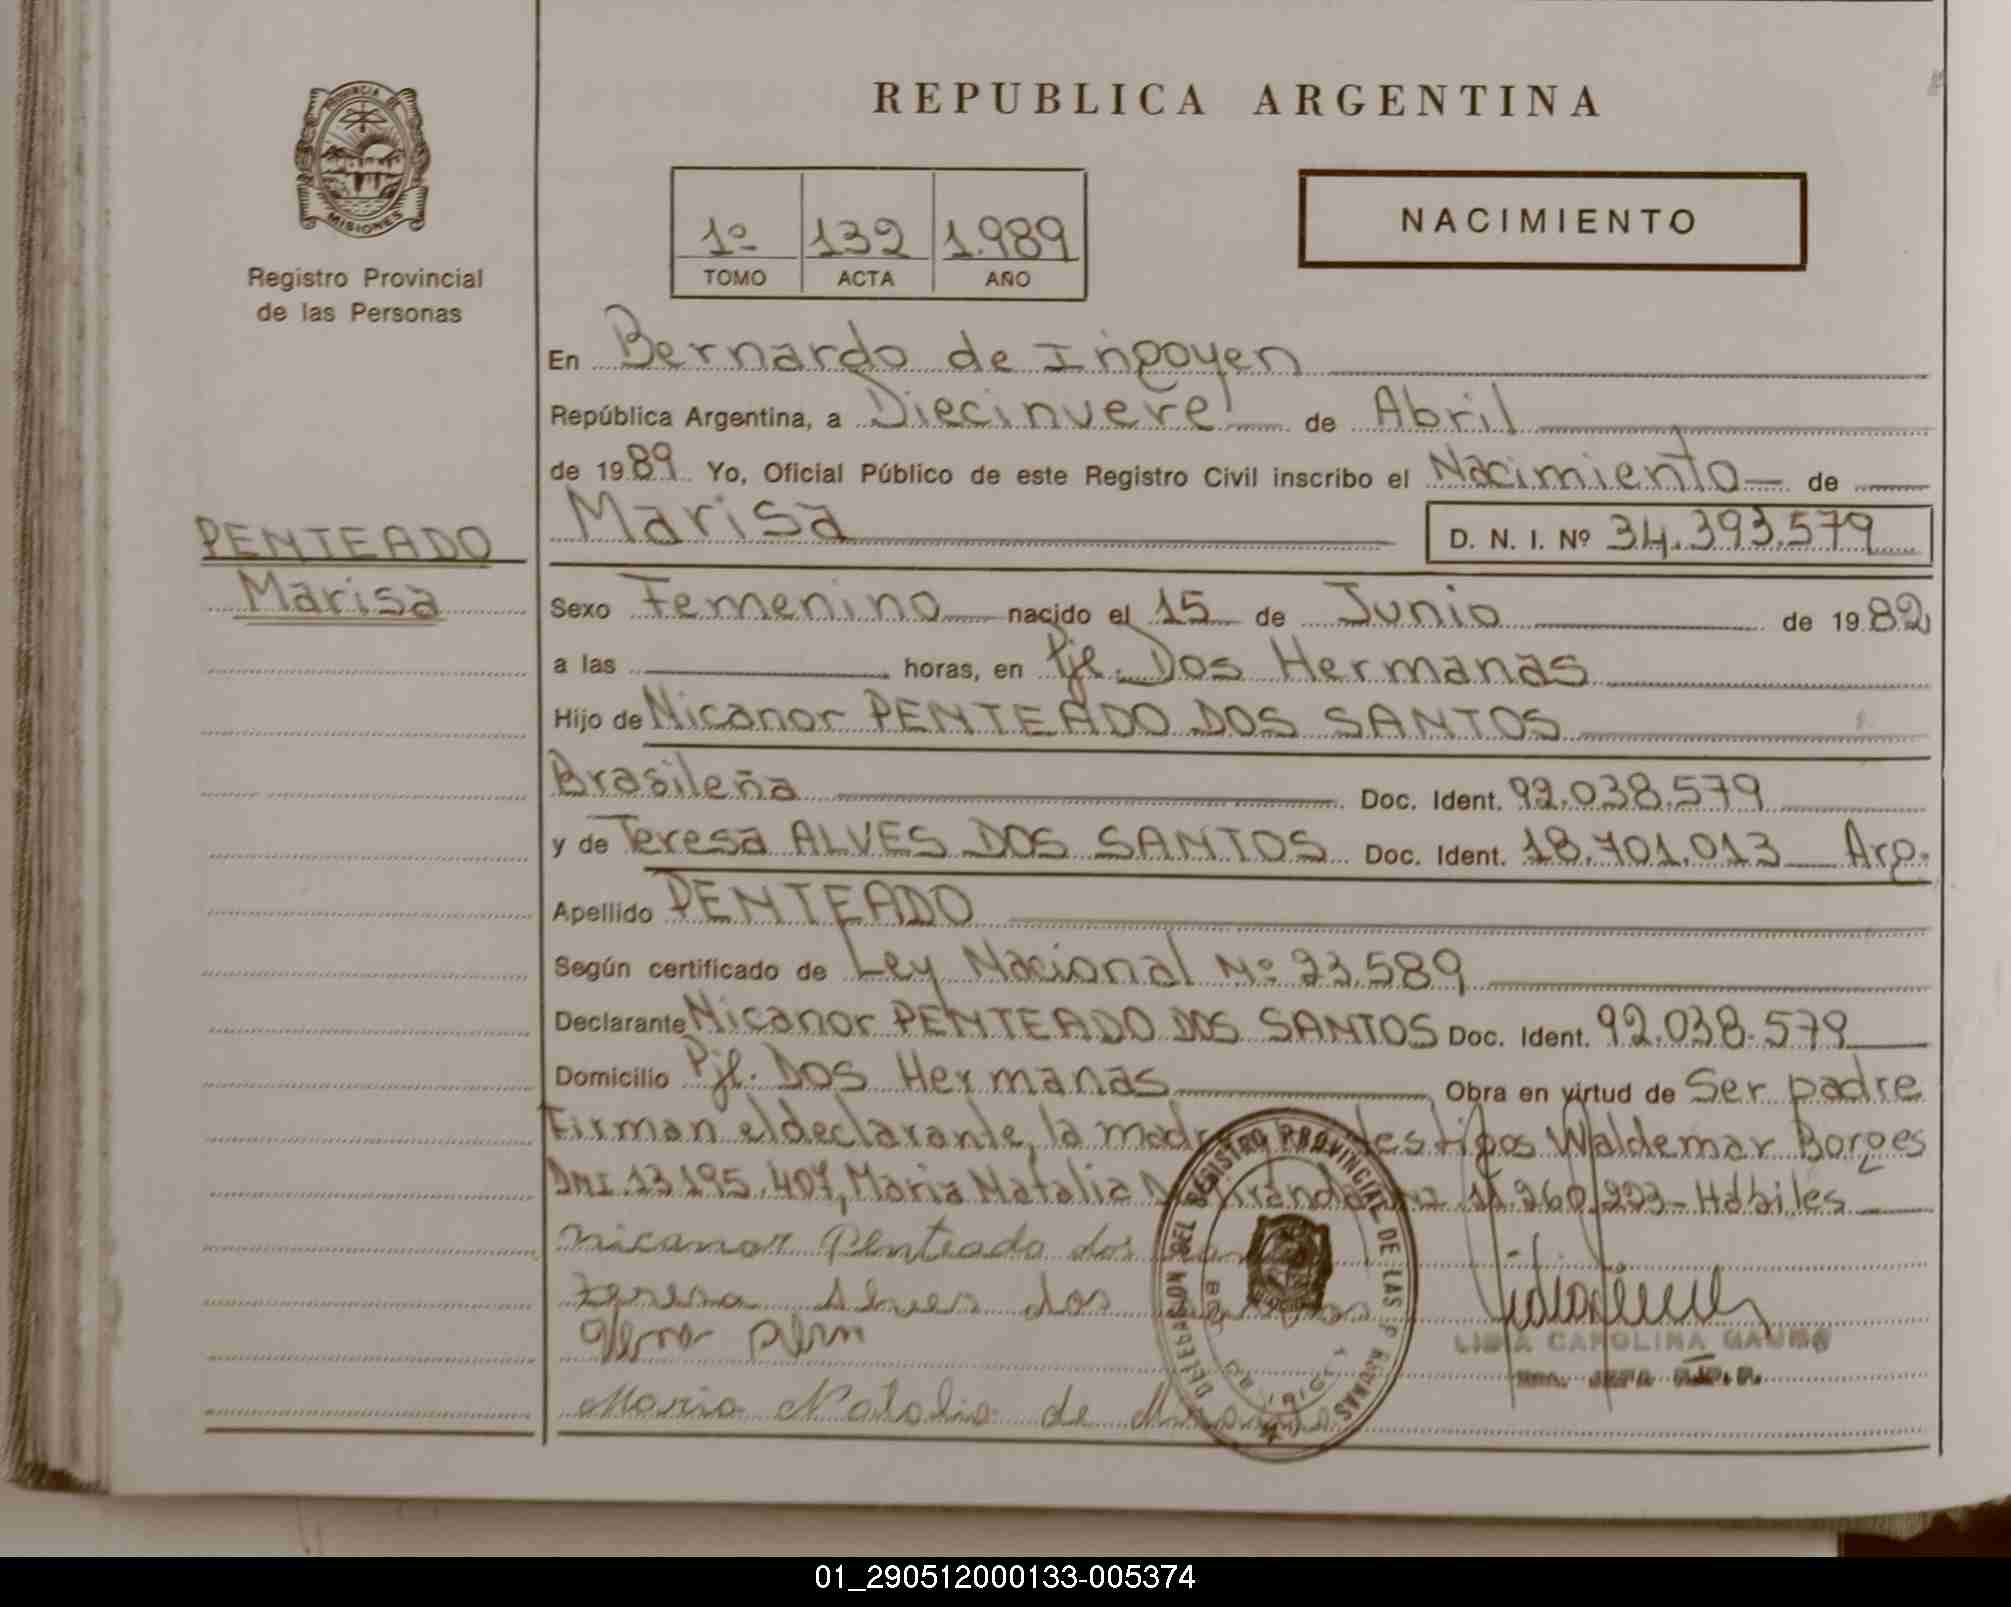 REPUBLICA ARGENTINA
PROVINCIA DE
MISIONES
Registro Provincial
de las Personas
1º 132 1.989
TOMO ACTA AÑO
NACIMIENTO
En Bernardo de Irigoyen
República Argentina, a Diecinueve de Abril
de 1989 Yo, Oficial Público de este Registro Civil inscribo el Nacimiento de
Marisa D. N. I. Nº 34.393.579
PENTEADO
Marisa
Sexo Femenino nacido el 15 de Junio de 1982
a las horas, en Pje. Dos Hermanas
Hijo de Nicanor PENTEADO DOS SANTOS
Brasileña Doc. Ident. 92.038.579
y de Teresa ALVES DOS SANTOS Doc. Ident. 18.701.013 Arg.
Apellido PENTEADO
Según certificado de Ley Nacional Nº 23.589
Declarante Nicanor PENTEADO DOS SANTOS Doc. Ident. 92.038.579
Domicilio Pje. Dos Hermanas Obra en virtud de Ser padre
Firman el declarante, la madre testigos Waldemar Borges
DNI.13.195.407, Maria Natalia 11.260.223- Hábiles
Nicanor Penteado dos
Teresa Alves dos
Maria Natalia de
DELEGACION DEL REGISTRO PROVINCIAL DE LAS PERSONAS
LIDIA CAROLINA
01_290512000133-005374